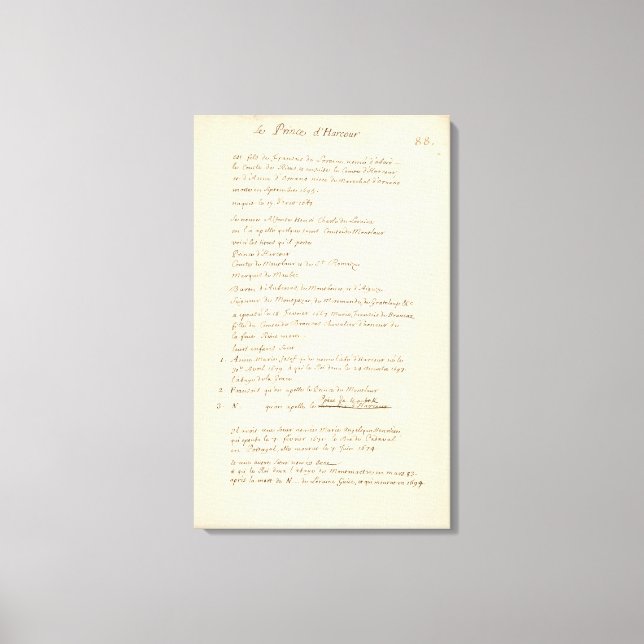 Le Prince d'Harcour
88.
est fils de François de Loraine nommé d'abord
le Comte de Rieux et ensuite le Comte d'Harcour
et d'Anne d'Ornano niece du Mareschal d'Ornano
morte en Septembre 1695.
naquit le 15
Se nomme Alfonse Henri Charle de Loraine
on l'a apellé quelque temps Comte de Monlaur
voici les titres qu'il porte
Prince d'Harcour
Comte de Monlaur et de St. Romaize
Marquis de Maubec
Baron d'Aubenas, de Montbonet et d'
Seigneur de Montpezat, de Miremande, de Grateloup &c
a epousé le 18 février 1667 Marie Françoise de Brancas
fille du Comte de Brancas chevalier d'honneur de
la feue Reine mere.
leurs enfans sont
1. Anne Marie Josef qu'on nomme d'Harcour né le
30e Avril 1679 à qui le Roi donna le 24 1693
l'abaye de la
2 François qu'on apelle le Prince de Monlaur
3 N. qu'on apelle le Prince de
d'Harcour
Il avoit une Sœur nommée Marie Angelique Henriette
qui epousa le 7 février 1671 le Duc de Cadaval
en Portugal, elle mourut le 7 Juin 1674
et une autre Sœur nommée
à qui le Roi donna l'abaye de Montmartre, en mars 83
après la mort de N... de Loraine Guise, et qui mourut en 1699